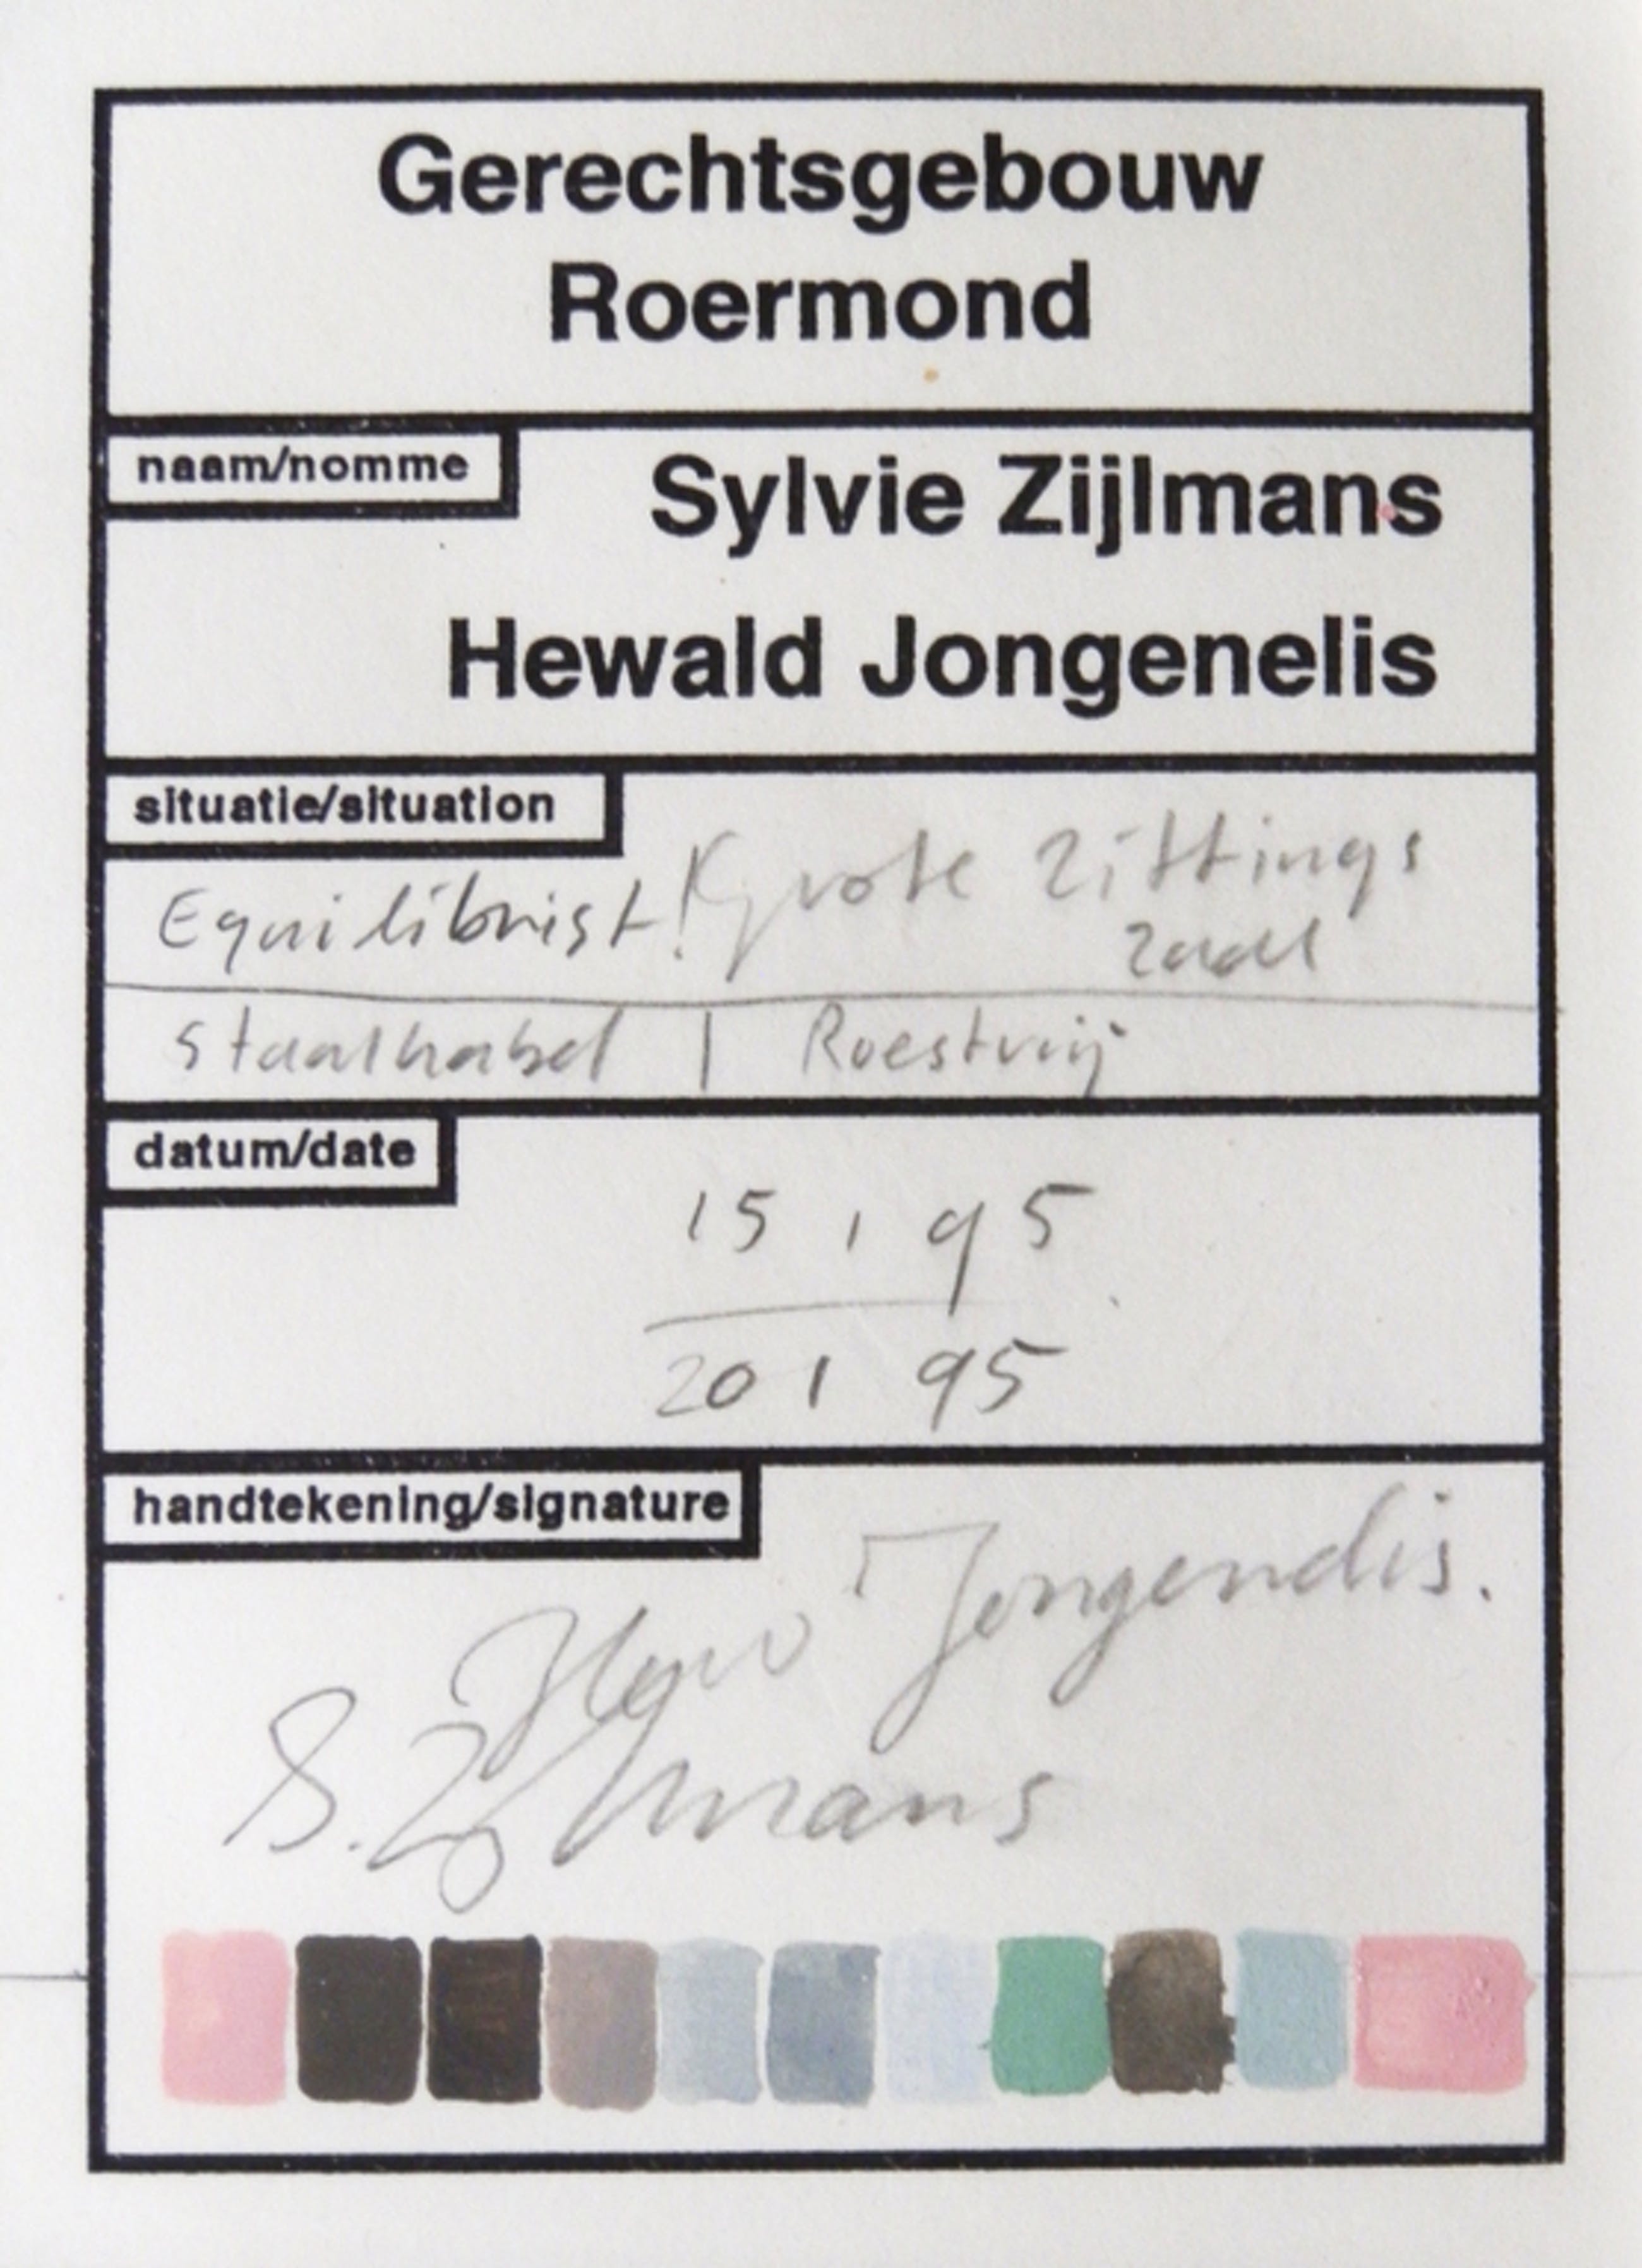 Gerechtsgebouw
Roermond
naam/nomme
Sylvie Zijlmans
Hewald Jongenelis
situatie/situation
Equilibrist! Grote Zittings
zaal
Staalkabel | Roestvrij
datum/date
15 1 95
20 1 95
handtekening/signature
Jongenelis.
S. Zijlmans